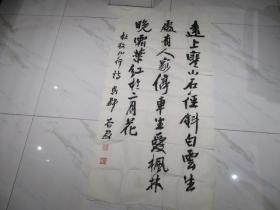 遠上寒山石徑斜白雲生
處有人家停車坐愛楓林
晚霜葉紅於二月花
杜牧山行詩